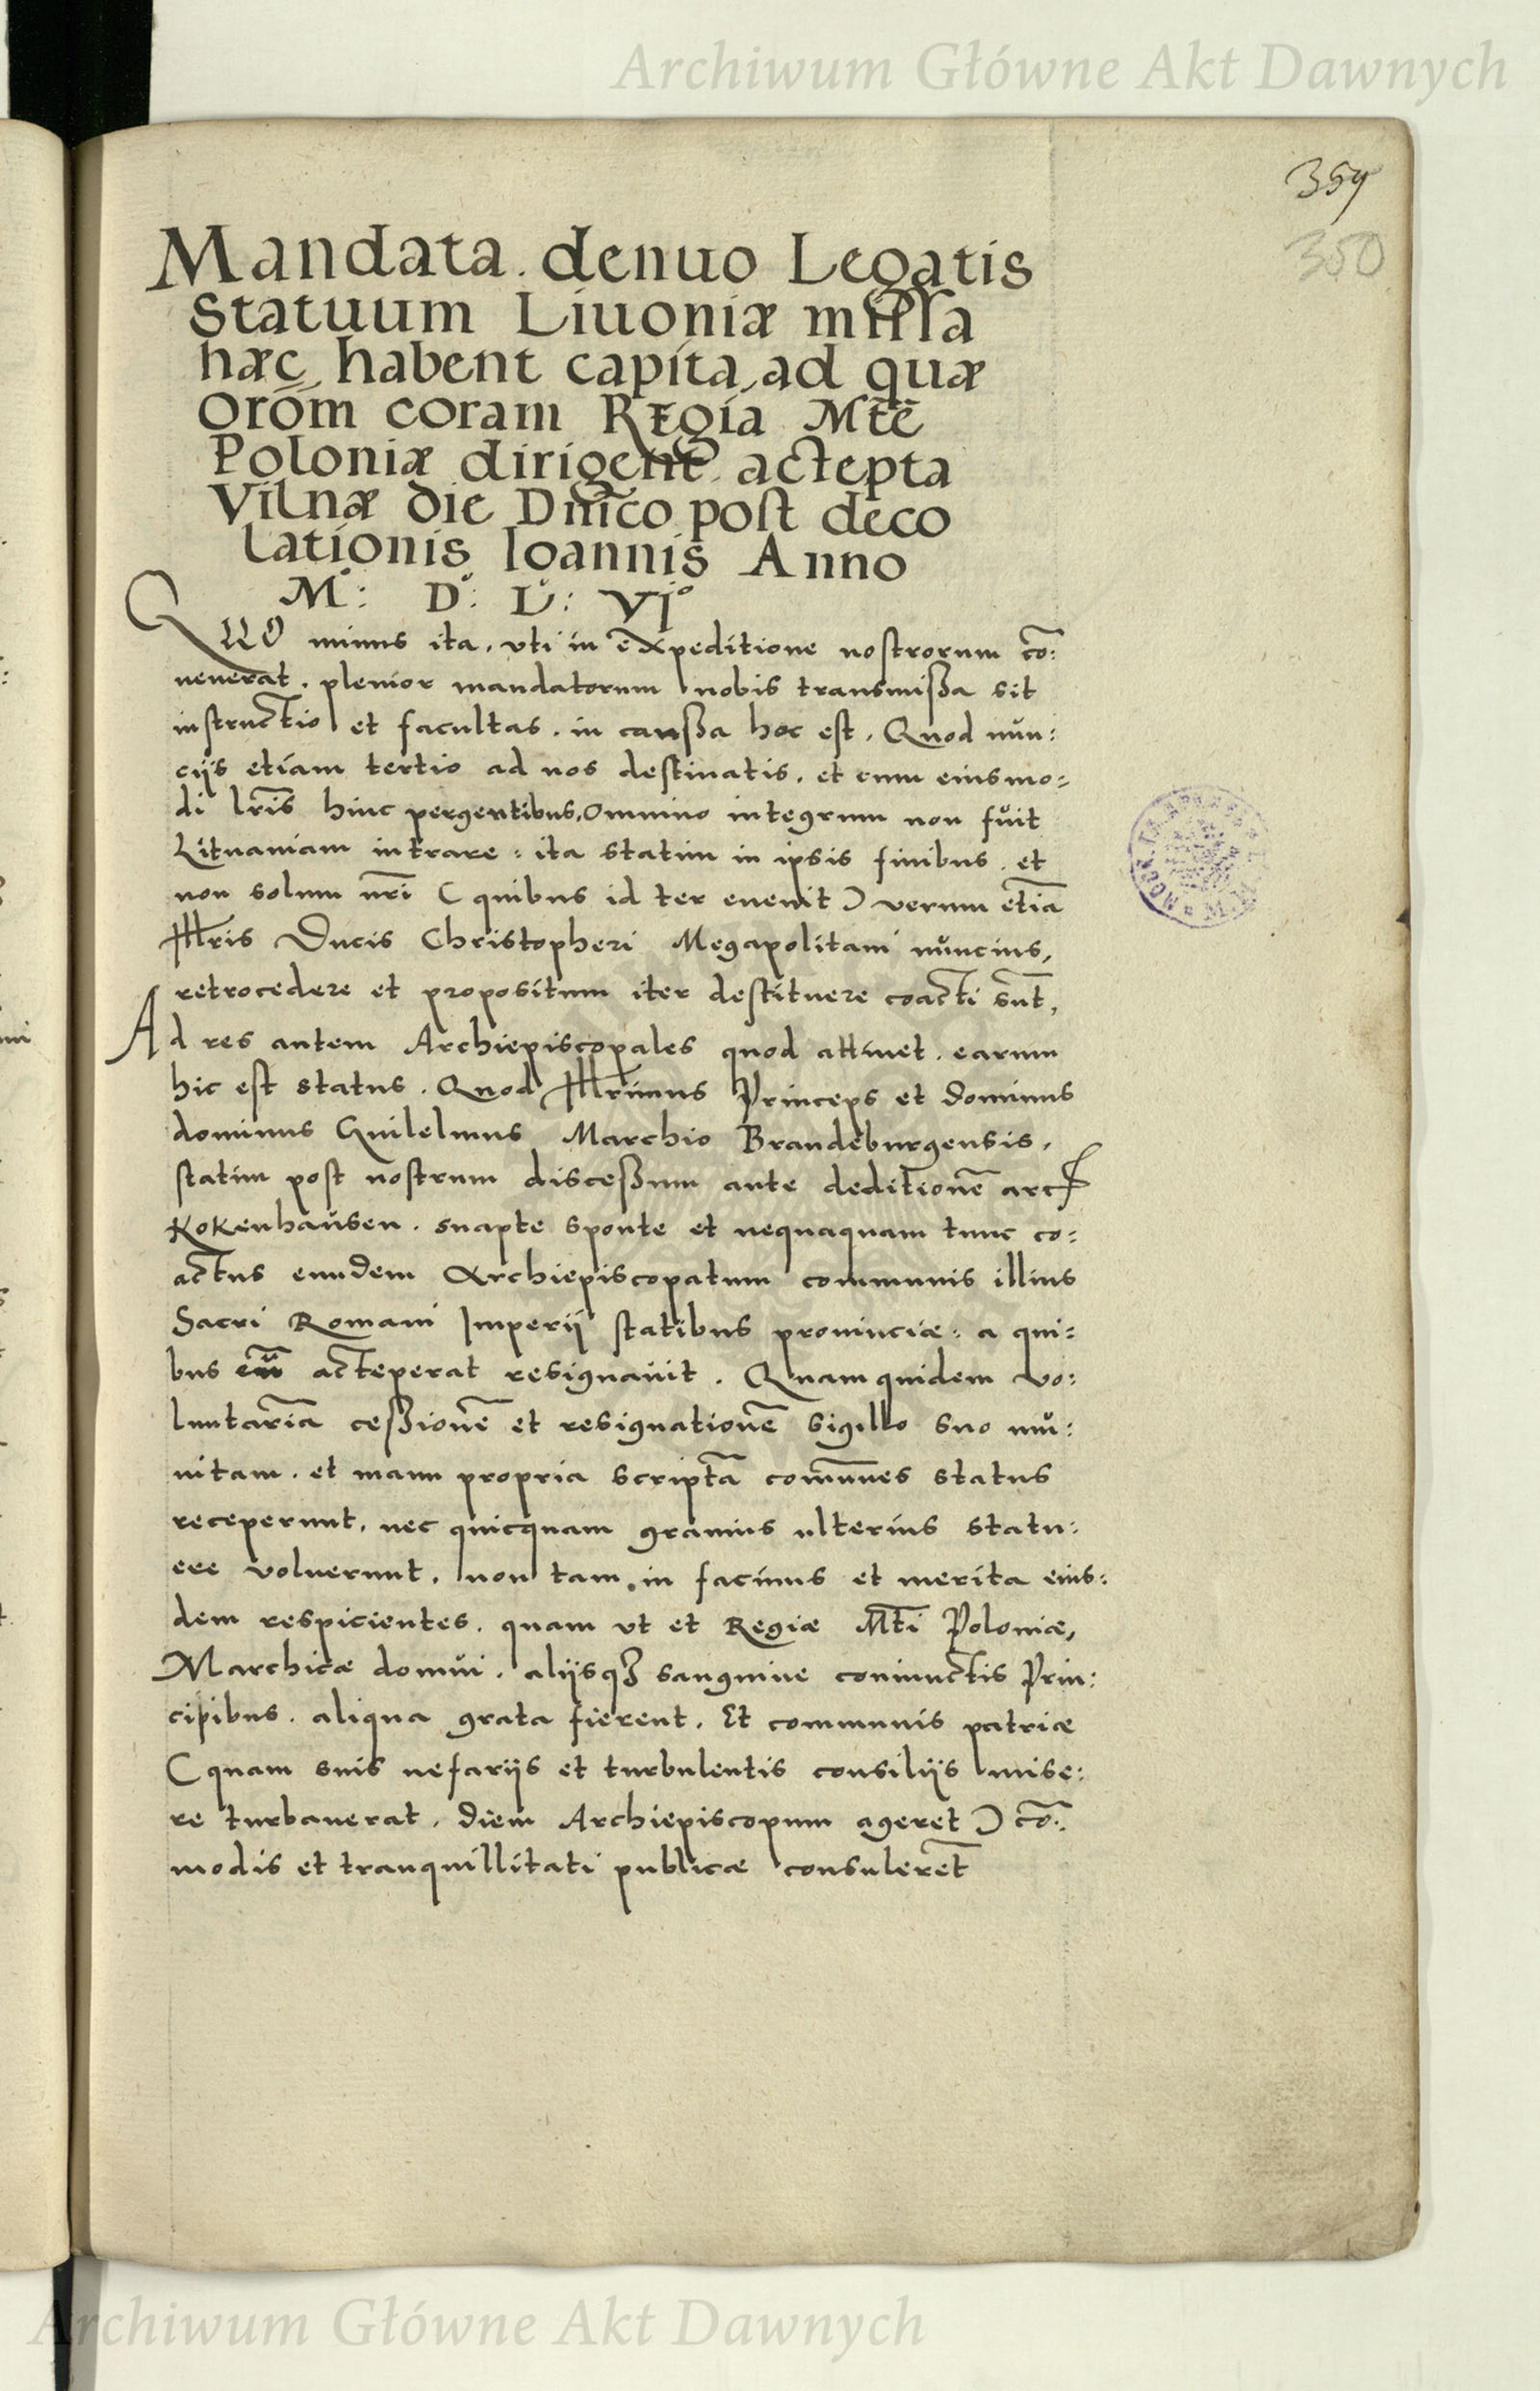 Archiwum Główne Akt Dawnych
359
350
Mandata denuo Legatis
statuum Liuoniæ missa
hæc habent capita, ad quæ
Orõm coram Regia Mtẽ
Poloniæ dirigent. accepta
Vilnæ die Dñico post deco
lationis Ioannis Anno
M°: D°: L°: VI°
QUO minus ita, vti in expeditione nostrorum cõ:
uenerat, plenior mandatorum nobis transmissa sit
instructio et facultas, in caussa hoc est, Quod nun:
ciĳs etiam tertio ad nos destinatis, et cum eiusmo:
di lr̃is hinc pergentibus, omnino integrum non fuit
Lituaniam intrare: ita statim in ipsis finibus, et
non solum nr̃i (quibus id ter euenit) verum etiã
Illr̃is Ducis Christopheri Megapolitani nuncius,
retrocedere et propositum iter destituere coacti sunt,
Ad res autem Archiepiscopales quod attinet, earum
hic est status. Quod Illr̃imus Princeps et dominus
dominus Guilelmus Marchio Brandeburgensis,
statim post nostrum discessum ante deditionẽ arcis
Kokenhausen, suapte sponte et nequaquam tunc co:
actus eundem Archiepiscopatum communis illius
Sacri Romani Imperĳ statibus prouinciæ: a qui:
bus eũ acceperat resignauit. Quam quidem vo:
luntariã cessionẽ et resignationẽ sigillo suo mu:
nitam, et manu propria scriptã com̃unes status
receperunt, nec quicquam grauius ulterius statu:
ere voluerunt, non tam in facinus et merita eius:
dem respicientes, quam vt et Regiæ Mti Poloniæ,
Marchicæ domui, alĳsqʒ sanguine coniunctis Prin:
cipibus, aliqua grata fierent, Et communis patriæ
(quam suis nefarĳs et turbulentis consilĳs mise:
re turbauerat, diem Archiepiscopum ageret) cõ:
modis et tranquillitati publicæ consulerẽt
Archiwum Główne Akt Dawnych